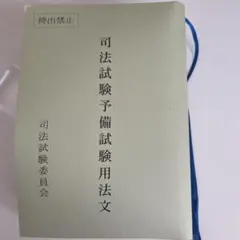 持出禁止
司法試験予備試験用法文
司法試験委員会